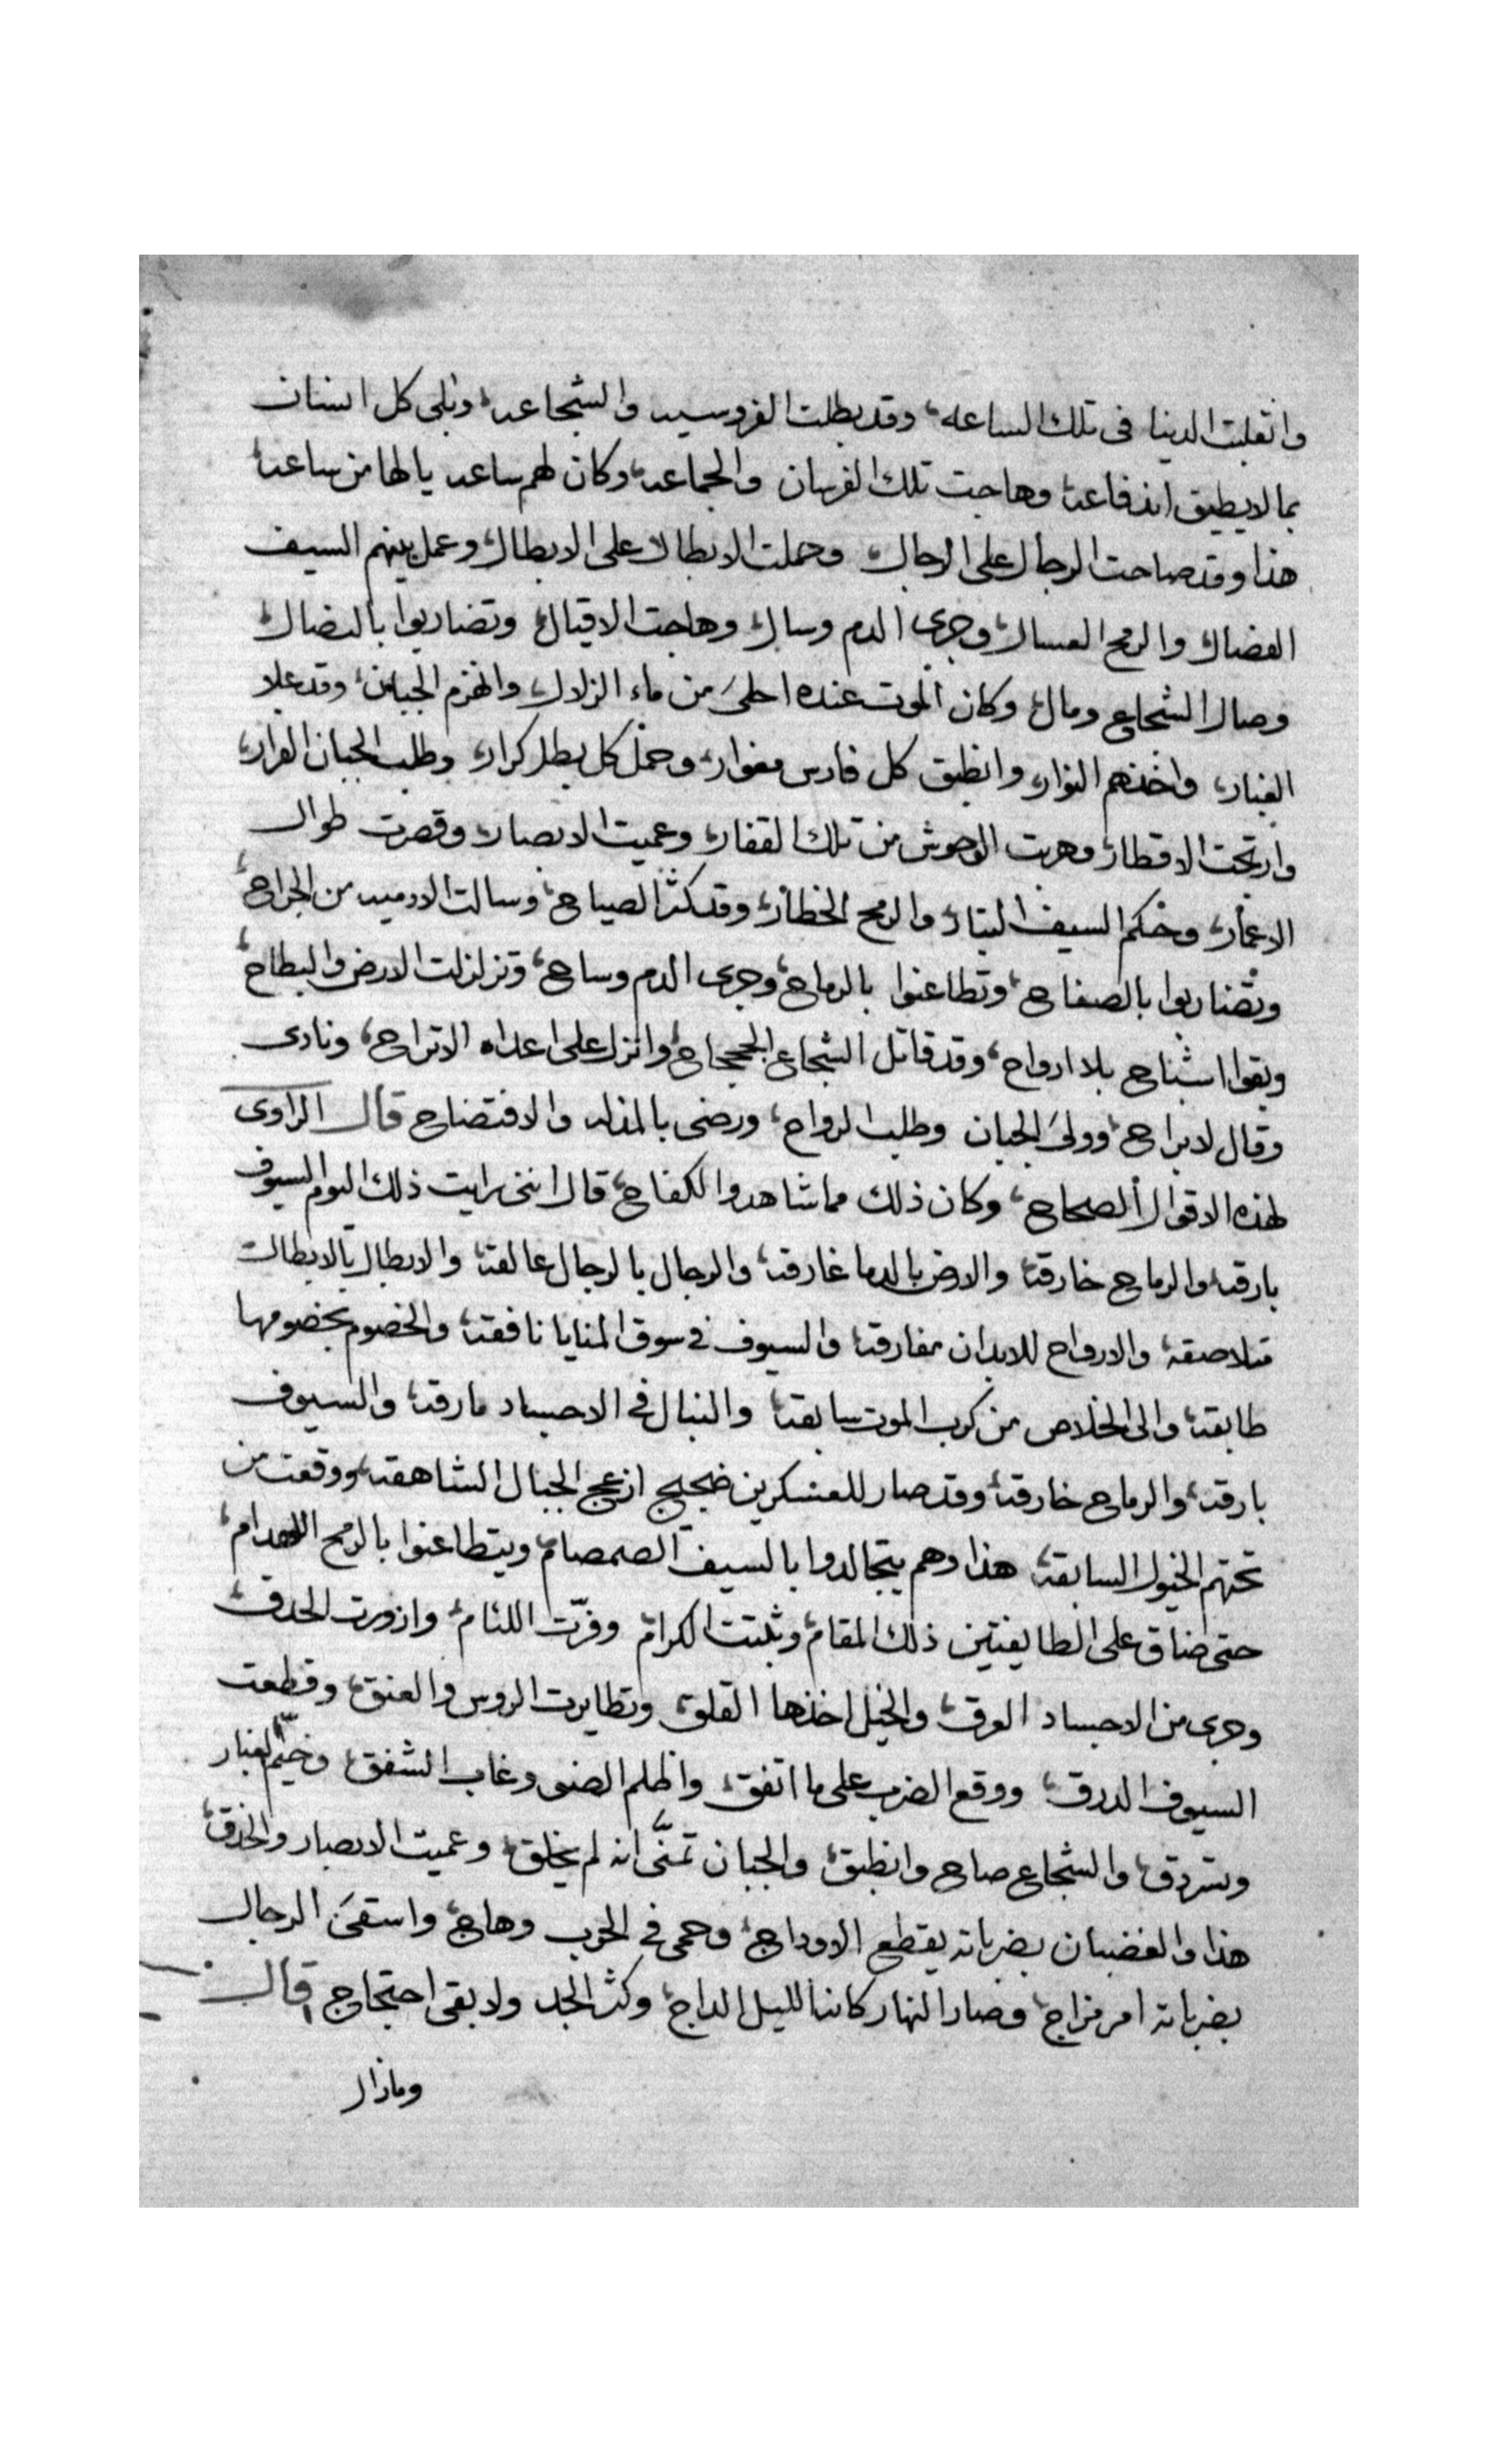 وانقلبت الدنيا فى تلك الساعه، وقد بطلت الفروسيه والشجاعه، وبلى كل انسان
بما لا يطيق اندفاعه، وهاجت تلك الفرسان والجماعه، وكان لهم ساعه يالها من ساعه،
هذا وقد صاحت الرجال على الرجال، وحملت الابطال على الابطال، وعمل بينهم السيف
الفضال، والرمح العسال، وجرى الدم وسال، وهاجت الاقيال، وتضاربوا بالنضال،
وصال الشجاع ومال، وكان الموت عنده احلى من ماء الزلال، وانهزم الجبان، وقد علا
الغبار، واخذهم البوار، وانطبق كل فارس مغوار، وحمل كل بطل كرار، وطلب الجبان الفرار،
وارتجت الاقطار، وهربت الوحوش من تلك القفار، وعميت الابصار، وقصرت طوال
الاعمار، وحكم السيف البتار، والرمح الخطار، وقد كثر الصياح، وسالت الادميه من الجراح،
وتضاربوا بالصفاح، وتطاعنوا بالرماح، وجرى الدم وساح، وتزلزلت الارض والبطاح،
وبقوا اشباح بلا ارواح، وقد قاتل الشجاع الججاح، وانزل على اعداه الاتراح، ونادى
وقال لا براح، وولى الجبان وطلب الرواح، ورضى بالمذله والافتضاح قال الراوى
لهذه الاقوال الصحاح، وكان ذلك مما شاهدوا الكفاح، قال اننى رايت ذلك اليوم السيوف
بارقه، والرماح خارقه، والارض بالدما غارقه، والرجال بالرجال عالقه، والابطال بالابطال
متلاصقه، والارواح للابدان مفارقه، والسيوف فى سوق المنايا نافقه، والخصوم بخصومها
طابقه، والى الخلاص من كرب الموت سابقه، والنبال فى الاجساد مارقه، والسيوف
بارقه، والرماح خارقه، وقد صار للعسكرين ضجيج ازعج الجبال الشاهقه، ووقعت من
تحتهم الخيول السابقه، هذا وهم يتجالدوا بالسيف الصمصام، ويتطاعنوا بالرمح اللهدام،
حتى ضاق على الطايفتين ذلك المقام، وثبتت الكرام، وفرّت اللئام، وازورت الحدق،
وجرى من الاجساد العرق، والخيل اخذها القلق، وتطايرت الروس والعنق، وقطعت
السيوف الدرق، ووقع الضرب على ما اتفق، واظلم الضى وغاب الشفق، وخيّم الغبار
وسردق، والشجاع صاح وانطبق، والجبان تمنّى انه لم يخلق، وعميت الابصار والحدق،
هذا والغضبان بضرباته يقطع الاوداج، وحمى فى الحرب وهاج، واسقى الرجال
بضرباته امر مزاج، وصار النهار كانه الليل الداج، وكثر الجد ولا بقى احتجاج، قال
ومازال